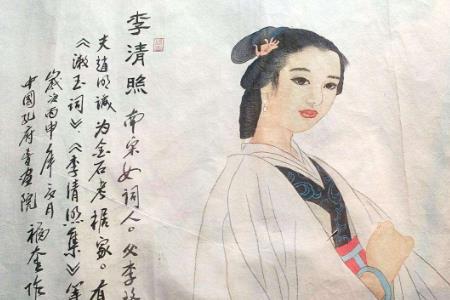 李清照 南宋女词人。父李
夫赵明诚为金石考据家。有
《漱玉词》、《李清照集》等
岁次丙申年六月
中国孔府书画院 福奎作